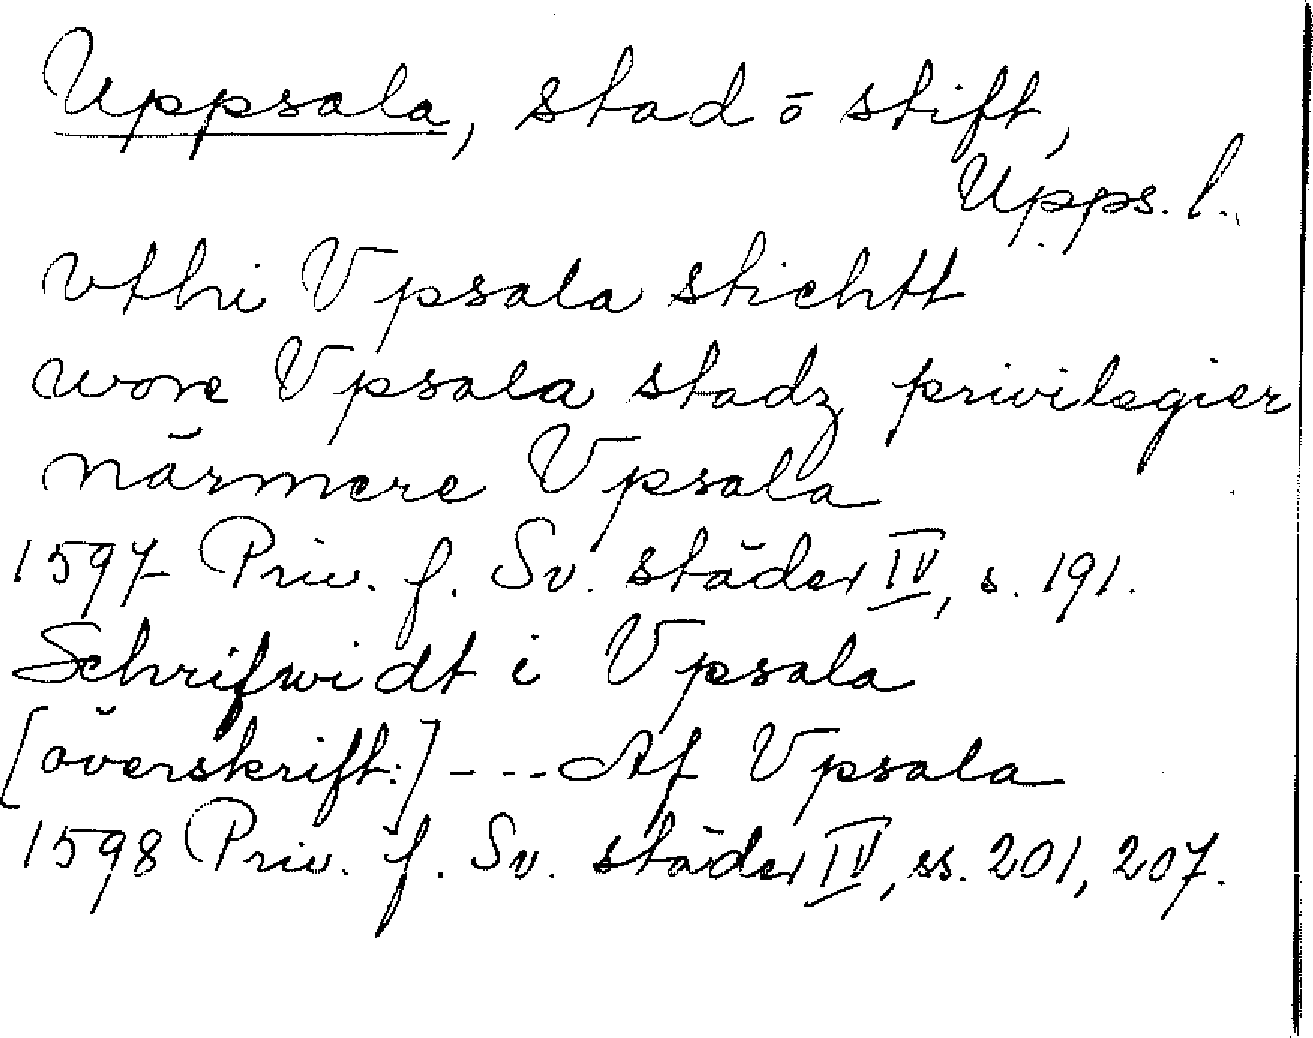 Uppsala, stad ō stift,
Upps. l.
vthi Vpsala stichtt
wore Vpsala stadz privilegier
närmere Vpsala
1597 Priv. f. Sv. städer IV, s. 191.
Schrifwidt i Vpsala
[överskrift:] --- Af Vpsala
1598 Priv. f. Sv. städer IV, ss. 201, 207.